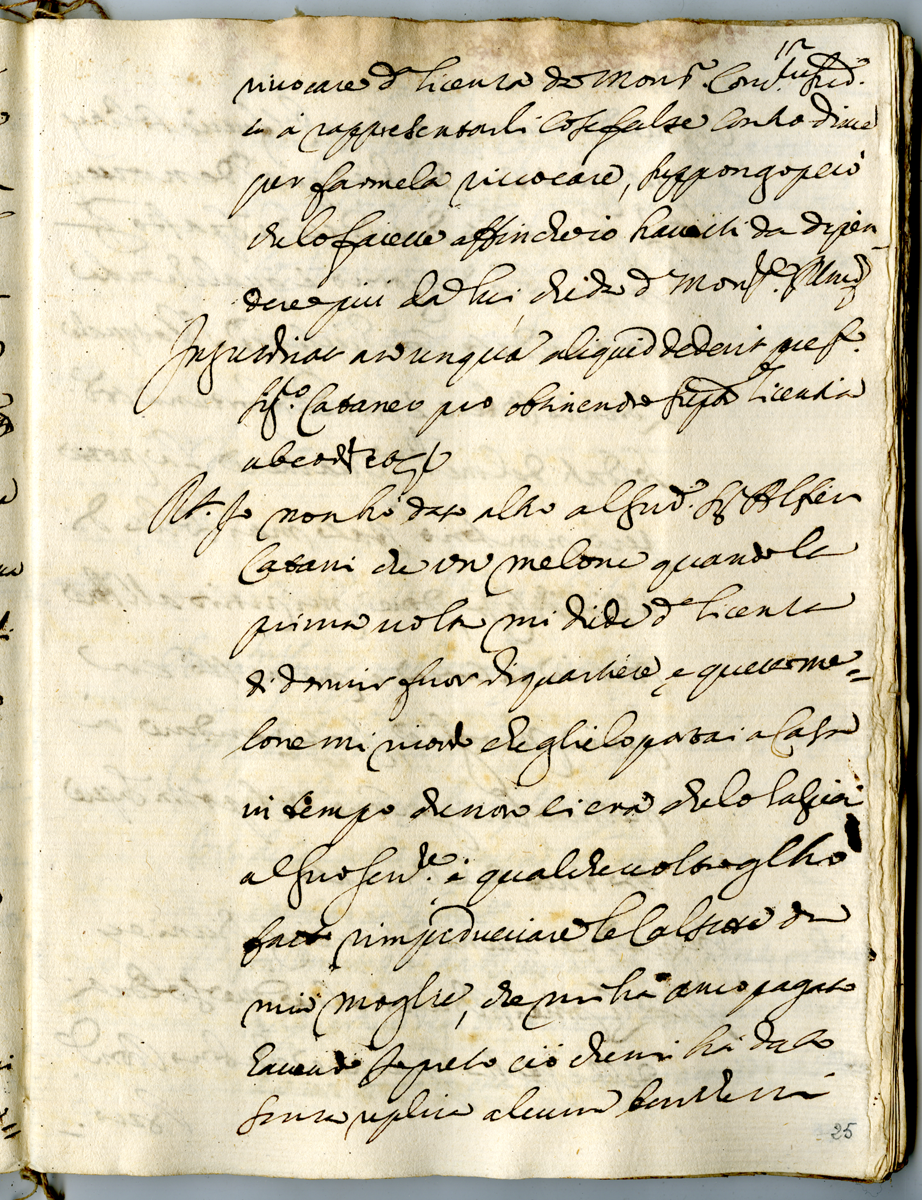 rivocare d.ª licenza da Mons.r
à rappresentarli cose false contro di me
per farmela rivocare, suppongo però
che lo facesse affinche io havessi da dipen
dere più da lui, che da d.º Mons.re
Interrogat an unquam aliquid dederit præf.º
Sig.º Cataneo pro obtinenda licentia
ab eod.
R.t Io non hò dato altro al sud.º Sig. Alfier
Catani che un melone quando la
prima volta mi diede d.ª licenza
di dormir fuor di quartiere, e questo me=
lone mi ricordo che glielo portai a Casa
in tempo che non ci era, che lo lasciai
al suo Ser.re, e qualche volta gl'ho
fatto rimproverare le Calzette da
mia moglie, che mi hà anco pagato
havendo sempre ciò che mi hà dato
senza replica alcuna
25